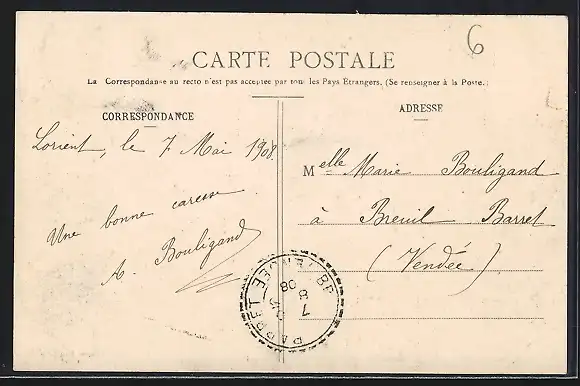 6
CARTE POSTALE
La Correspondance au recto n'est pas acceptée par tous les Pays Etrangers. (Se renseigner à la Poste.)
CORRESPONDANCE
Lorient, le 7 Mai 1908.
Une bonne caresse
A. Bouligand
ADRESSE
Melle Marie Bouligand
à Breuil Barret
(Vendée)
BARRET VENDÉE
7
8
08